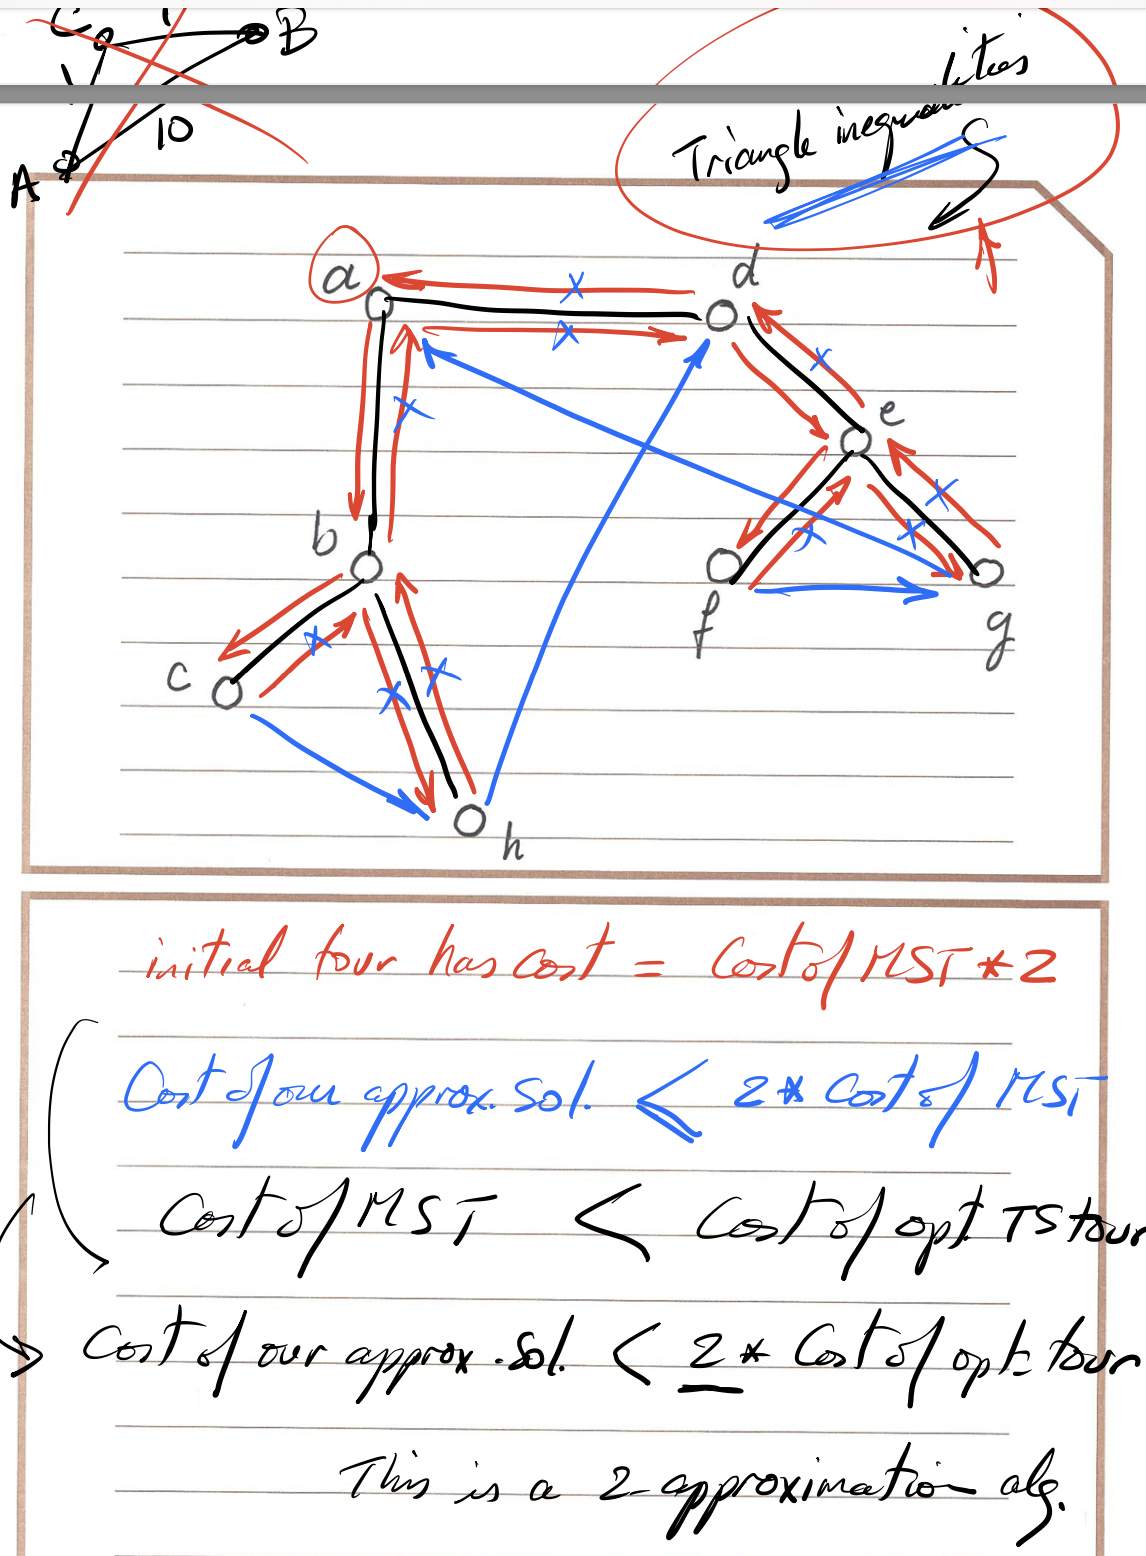 C 1 B
1
10
A
Triangle inequalities
a
d
e
b
f
g
c
h
initial tour has cost = Cost of MST * 2
Cost of our approx. sol. ≤ 2 * Cost of MST
Cost of MST < Cost of opt. TS tour
Cost of our approx. sol. < 2 * Cost of opt. tour
This is a 2-approximation alg.